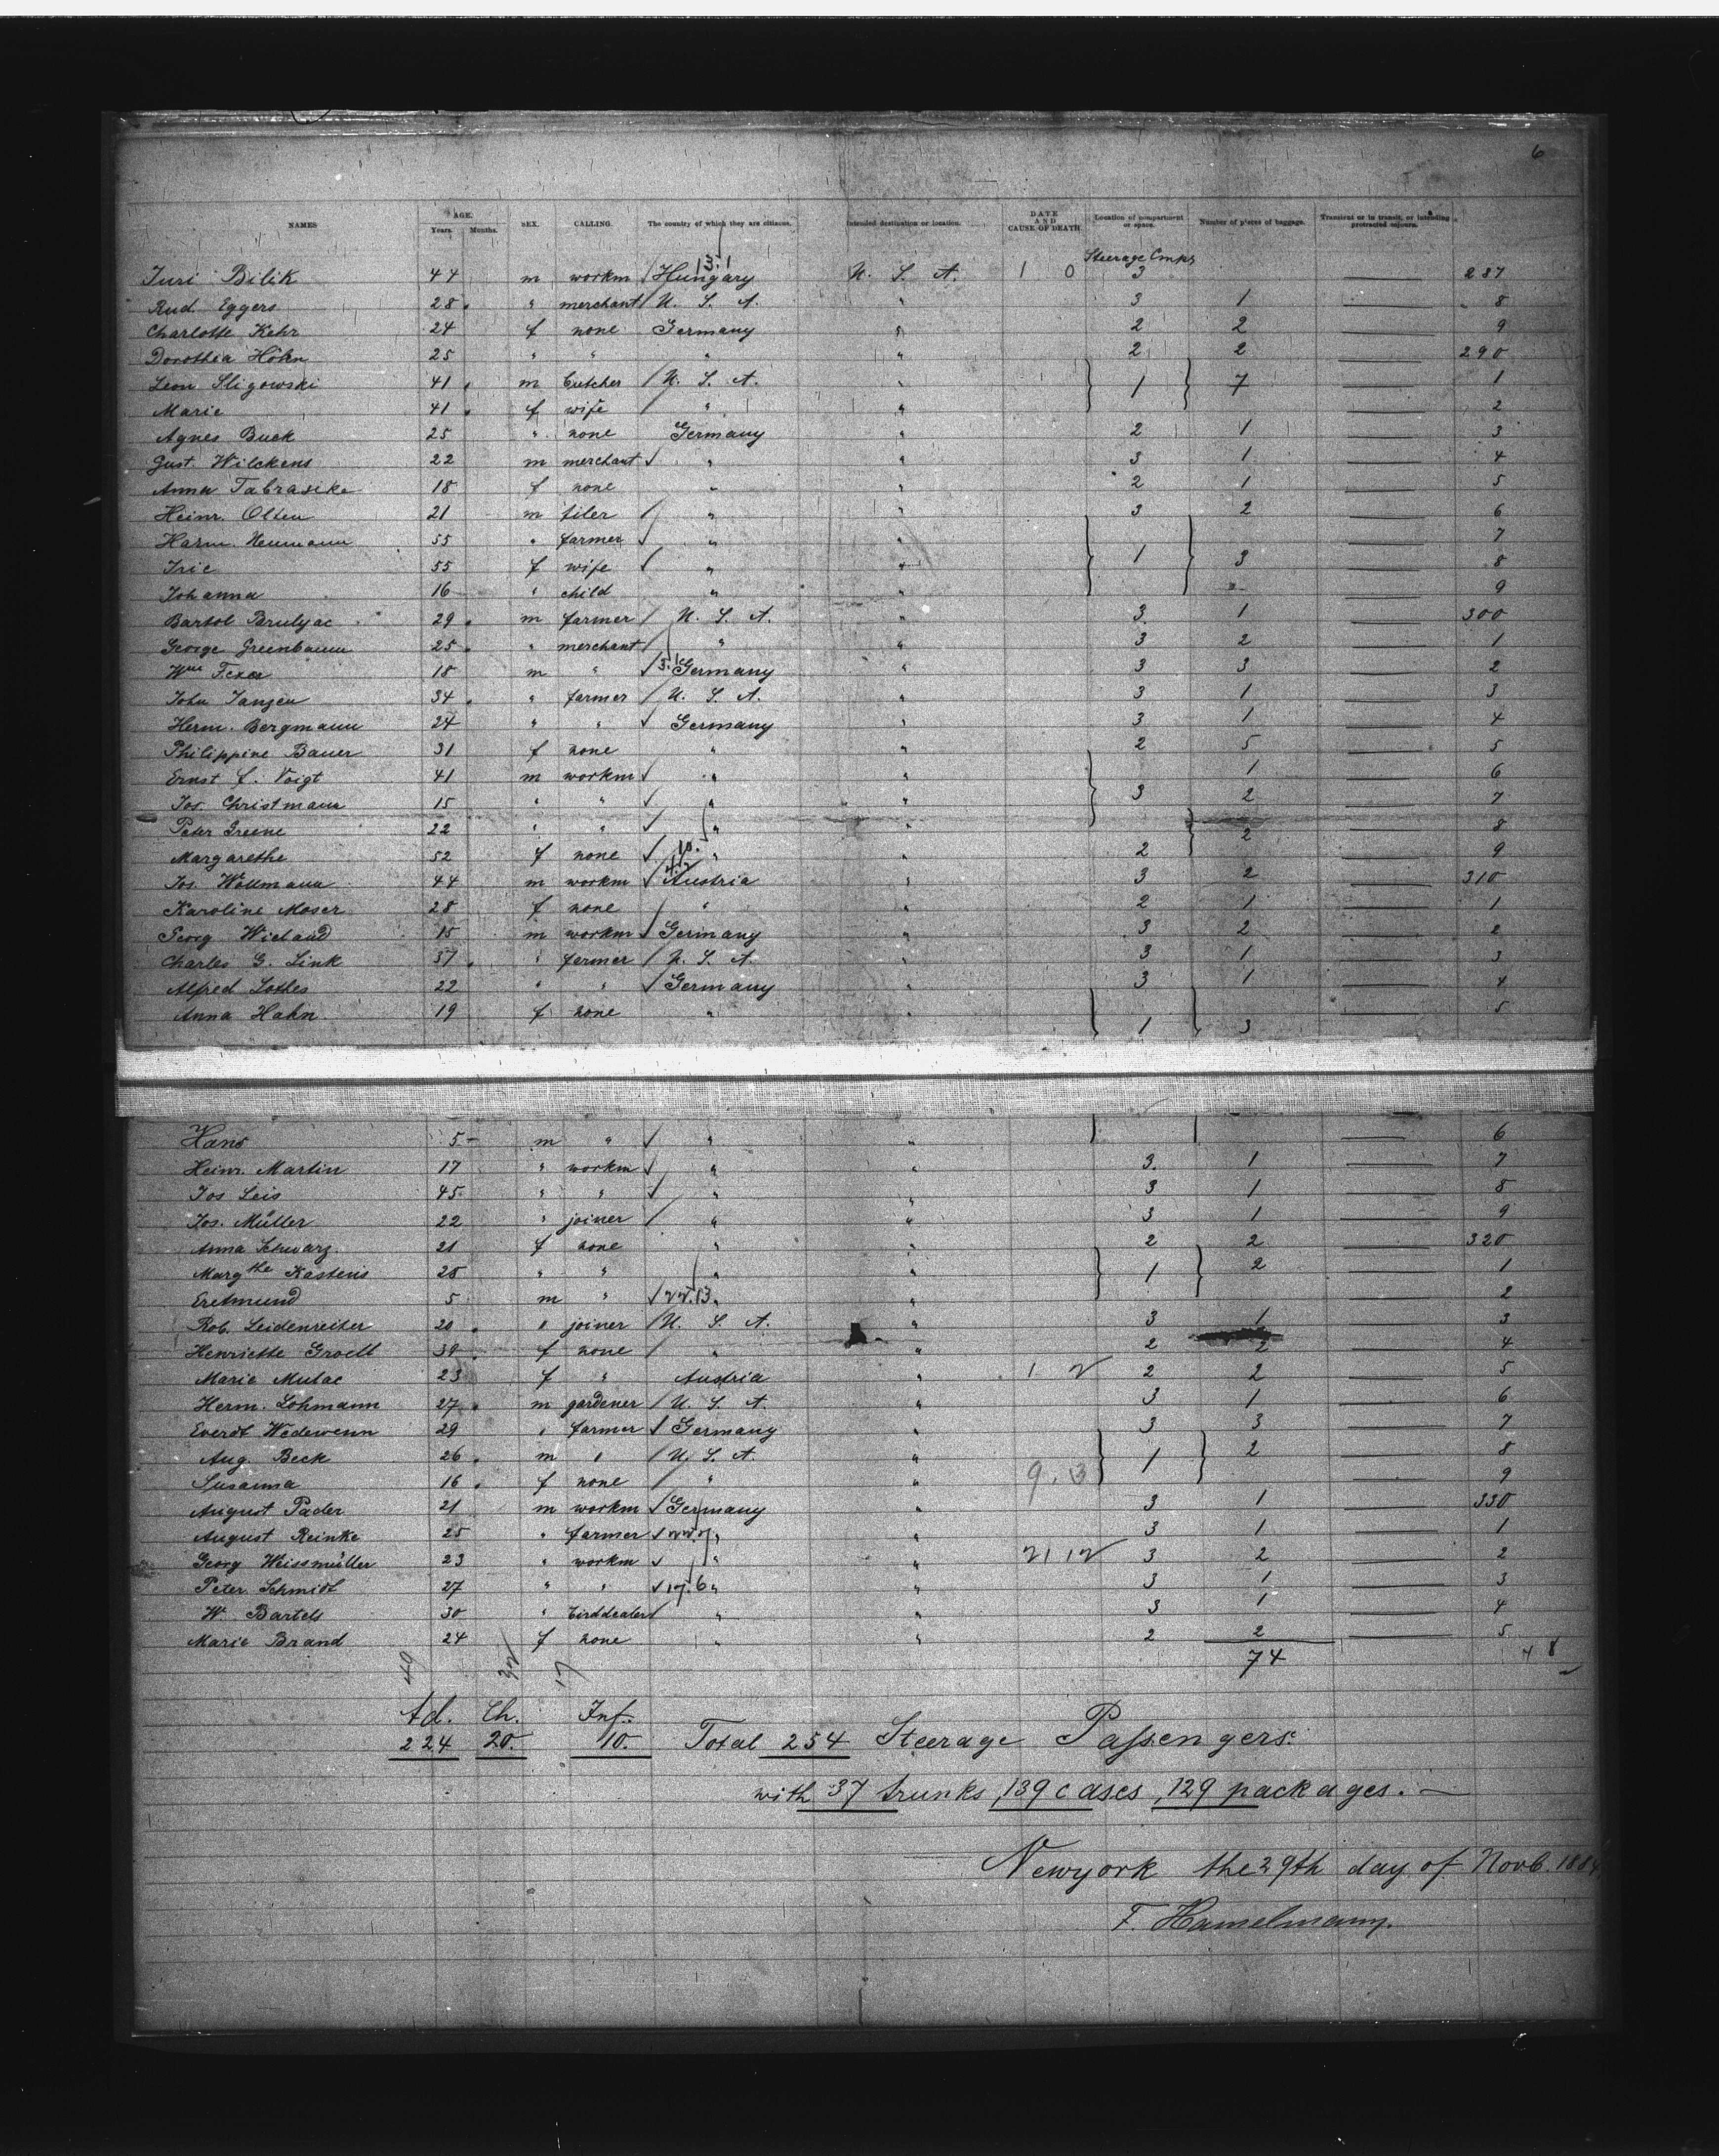 6
NAMES AGE. Years. Months. SEX. CALLING. The country of which they are citizens. Intended destination or location. DATE AND CAUSE OF DEATH Location of compartment or space. Number of pieces of baggage. Transient or in transit, or intending protracted sojourn.
Steerage Cmps
Juri Bilik 44 m workm / Hungary 13.1 U. S. A. 1 0 3 — 287
Rud. Eggers 28. " merchant / U. S. A. " 3 1 — 8
Charlotte Kehr 24 f none Germany " 2 2 — 9
Dorothea Höhn 25 " " " " 2 2 — 290
Leon Sligowski 41. m butcher / U. S. A. " } 1 } 7 — 1
Marie 41. f wife / " " — 2
Agnes Buck 25 " none Germany " 2 1 — 3
Gust. Wilckens 22 m merchant ✓ " " 3 1 — 4
Anna Tabraseke 18 f none " " 2 1 — 5
Heinr. Olten 21 m tiler / " " 3 2 — 6
Harm. Neumann 55 " farmer ✓ " " — 7
55 f wife ✓ " " } 1 } 3 — 8
Johanna 16 " child " " — 9
Bartol Brulyac 29. m farmer / U. S. A. " 3 1 — 300
George Greenbaum 25. " merchant / " " 3 2 — 1
Wm 18 m " ✓ Germany " 3 3 — 2
John Janzen 34. " farmer / U. S. A. " 3 1 — 3
Herm. Bergmann 24 " " ✓ Germany " 3 1 — 4
Philippine Bauer 31 f none " " 2 5 — 5
Ernst f. Voigt 41 m workm ✓ " " 1 — 6
Jos. Christmann 15 " " ✓ " " } 3 2 — 7
Peter Greene 22 " " ✓ " " } 2 — 8
Margarethe 52 f none ✓ 10. " " 2 — 9
Jos. Wollmann 44 m workm ✓ Austria " 3 2 — 310
Karoline Moser 28 f none " " 2 1 — 1
Georg Wieland 15 m workm ✓ Germany " 3 2 — 2
Charles G. Link 37. " farmer / U. S. A. " 3 1 — 3
Alfred Lothes 22 " " ✓ Germany " 3 1 — 4
Anna Hahn 19 f none " " } 1 } 3 — 5
Hans 5- m " ✓ " " — 6
Heinr. Martin 17 " workm ✓ " " 3. 1 — 7
Jos Leis 45 " " ✓ " " 3 1 — 8
Jos. Müller 22 " joiner / " " 3 1 — 9
Anna Schwarz 21 f none " " 2 2 — 320
Margthe Kastens 28 " " " " } 1 } 2 — 1
Eretmund 5 m " ✓ " " — 2
Rob. Leidenreiter 20. " joiner / U. S. A. " 3 1 — 3
Henriette Groell 39. f none / " " 2 2 — 4
Marie Mutac 23 f " Austria " 1 2 2 2 — 5
Herm. Lohmann 27. m gardener / U. S. A. " 3 1 — 6
Everdt Wedewenn 29 " farmer ✓ Germany " 3 3 — 7
Aug. Beck 26. m " / U. S. A. " } 1 } 2 — 8
Susanna 16. f none / " " 9. 3 — 9
August Pader 21 m workm ✓ Germany " 3 1 — 330
August Reinke 25 " farmer ✓ " " 3 1 — 1
Georg Weissmüller 23 " workm ✓ " " 3 2 — 2
Peter Schmidt 27 " " ✓ 17.6 " " 3 1 — 3
W. Bartels 30 " birddealer / " " 3 1 — 4
Marie Brand 24 f none " " 2 2 — 5
74
49 32 17
Ad. Ch. Inf.
224 20. 10. Total 254 Steerage Passengers.
with 37 trunks, 139 cases, 129 packages. —
Newyork the 29th day of Novb. 1884
F. Hamelmann.